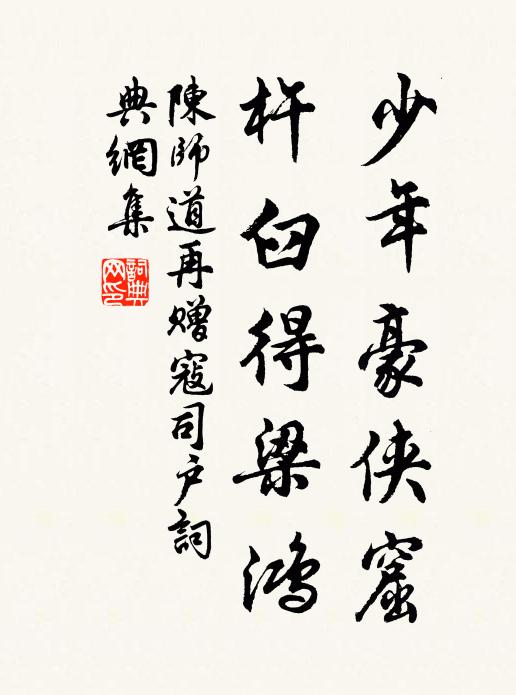 少年豪侠窟
杵臼得梁鴻
陳師道再赠寇司户詞
典網集
詞典网印